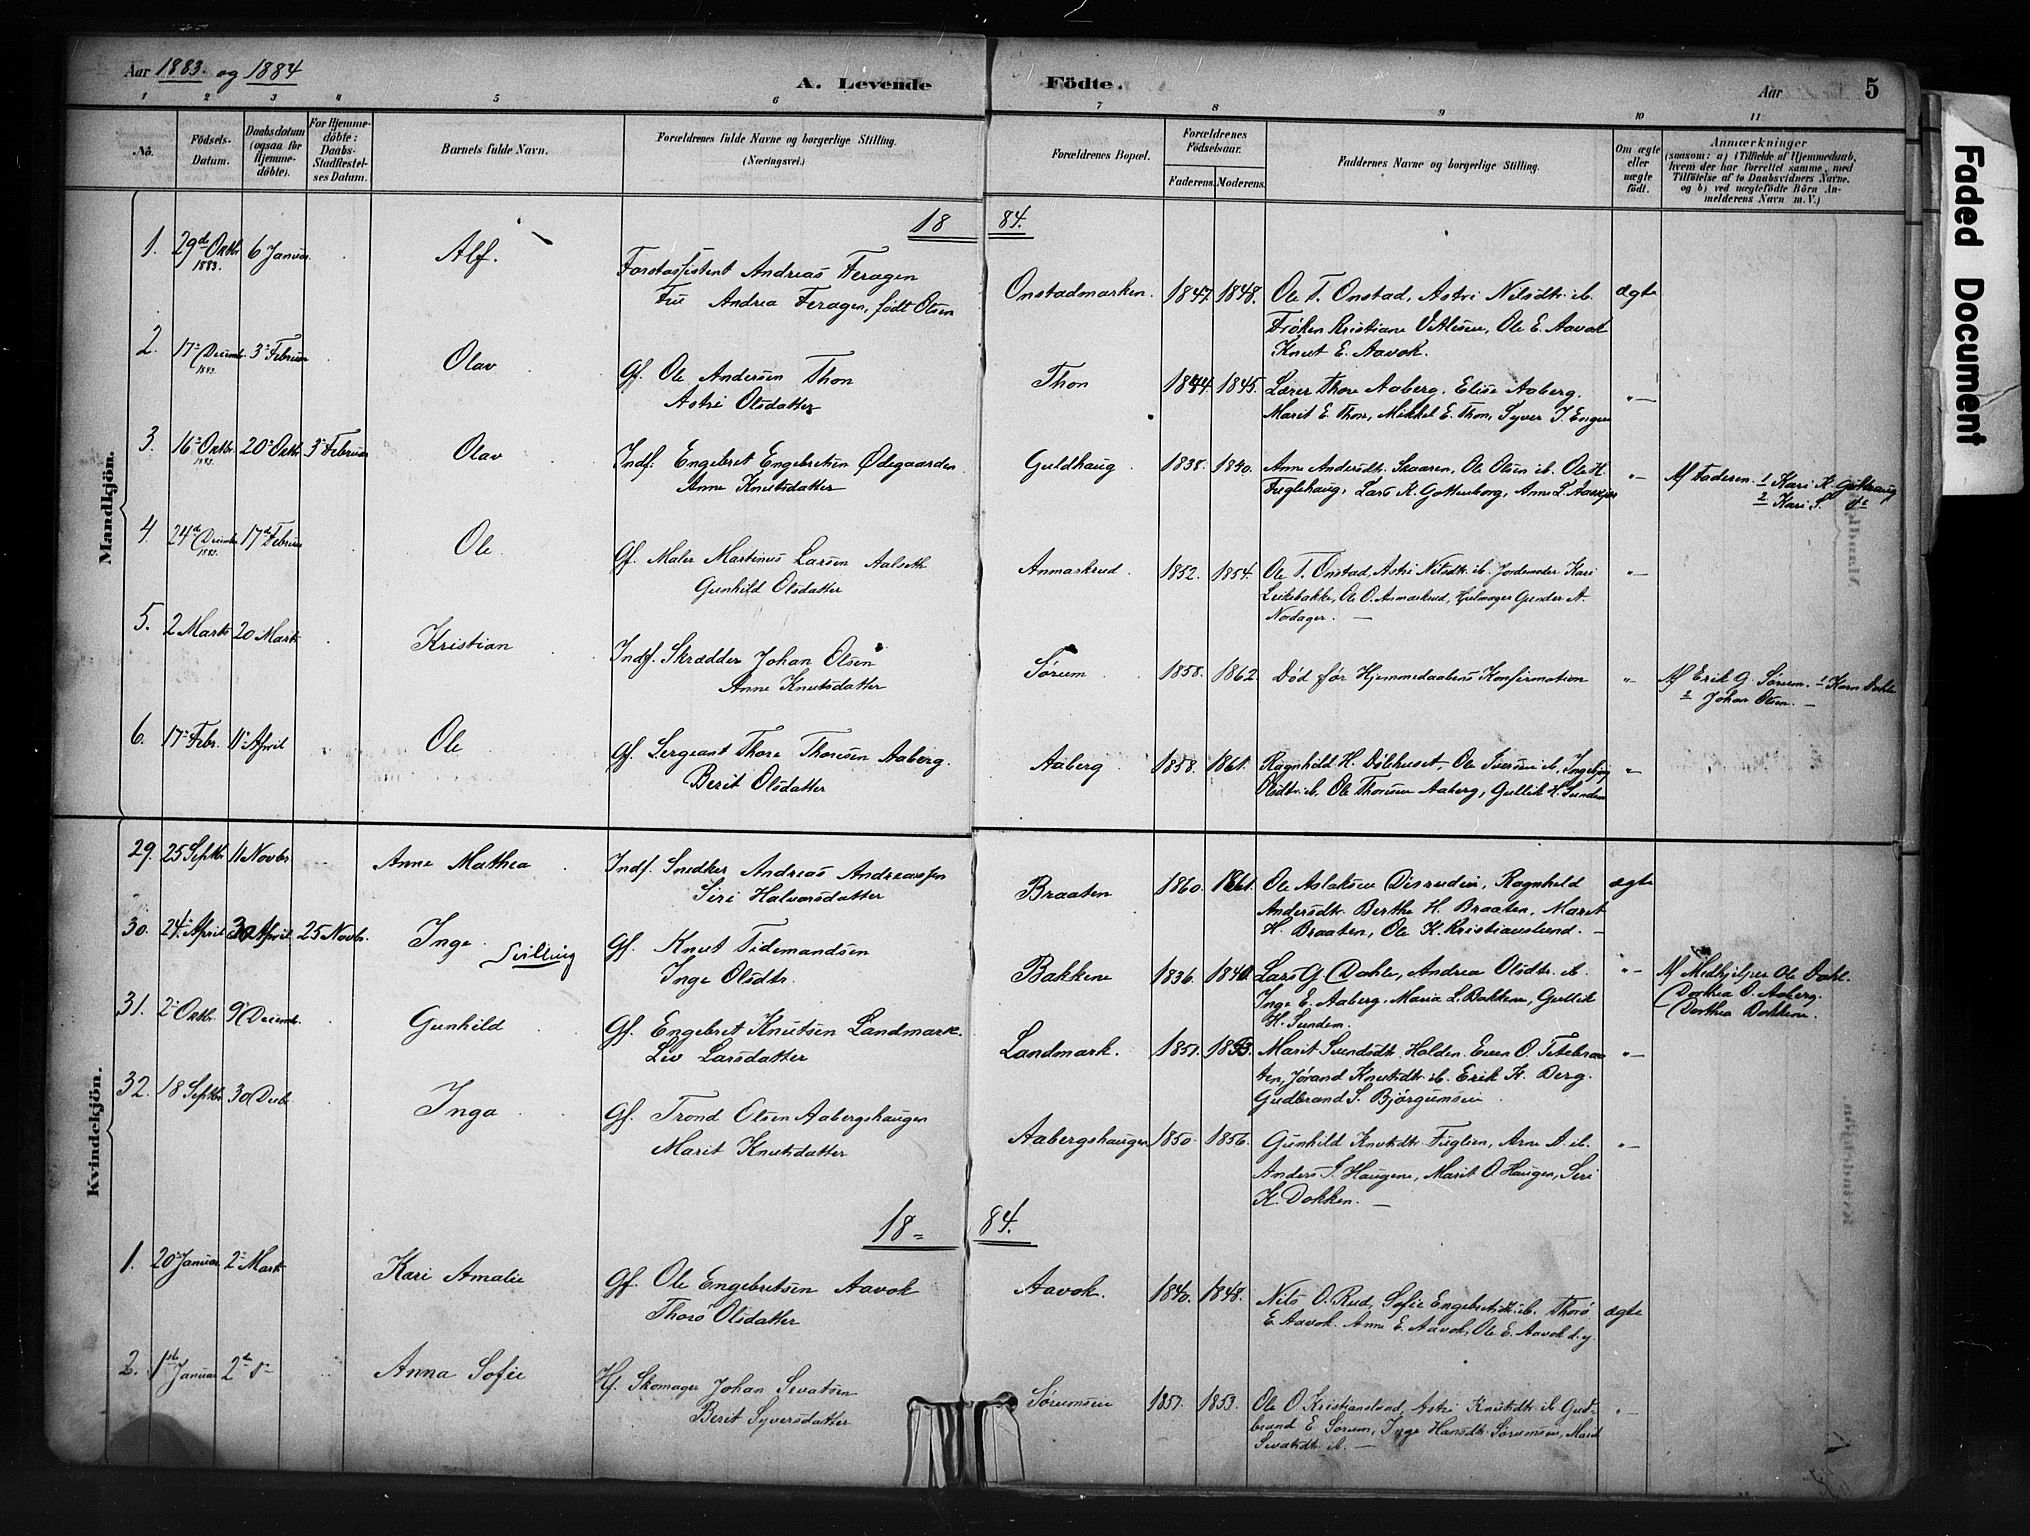 Aar 1883. og 1884
A. Levende Födte.
Aar 5
1 2 3 4 5 6 7 8 9 10 11
No.
Födsels-Datum.
Daabsdatum (ogsaa for Hjemme-döbte).
For Hjemme-döbte: Daabs-Stadfæstel-ses Datum.
Barnets fulde Navn.
Forældrenes fulde Navne og borgerlige Stilling. (Næringsvei.)
Forældrenes Bopæl.
Forældrenes Födselsaar.
Faderens. Moderens.
Faddernes Navne og borgerlige Stilling.
Om ægte eller uægte födt.
Anmærkninger
(saasom: a) i Tilfælde af Hjemmedaab,
hvem der har forrettet samme, med
Tilföielse af to Daabsvidners Navne,
og b) ved uægtefödte Börn An-
melderens Navn m. V.)
Faded Document
Mandkjön.
18 84.
1. 29de Oktbr. 1883. 6 Januar Alf.
Forstassistent Andreas Feragen
Fru Andrea Feragen, født Olsen
Onstadmarken. 1847. 1848.
Ole T. Onstad, Astri Nilsdtr. ib.
Frøken Kristiane Vetlesen, Ole E. Aavok
Knut E. Aavok.
ægte
2. 17. Decemb. 1883. 3. Februar Olav
Gf. Ole Andersen Thon
Astri Olsdatter
Thon 1844. 1845.
Lærer Thore Aaberg, Elise Aaberg,
Marit E. Thon, Mikkel E. Thon, Syver J. Engen
"—
3. 16. Oktbr. 1883. 20. Oktbr 3. Februar Olav
Indf. Engebret Engebretsen Ødegaarden
Anne Knutsdatter
Guldhaug 1838. 1840.
Anne Andersdtr. Skaaren, Ole Olsen ib. Ole H.
Fuglehaug, Lars K. Gottenborg, Anne L.
"—
Af Faderen. 1 Kari K.
2 Kari
4. 24de Decemb. 1883. 17de Februar Ole
Gf. Maler Martinus Larsen Aalseth
Gunhild Olsdatter
Anmarkrud. 1852. 1854.
Ole T. Onstad, Astri Nilsdtr. ib. Jordemoder Kari
Leikebakke, Ole O. Anmarkrud, Hjulmager Gunder A.
Nordager. —
"—
5. 2 Marts 20 Marts Kristian
Indf. Skrædder Johan Olsen
Anne Knutsdatter
Sørum 1858. 1862
Død før Hjemmedaabens Konfirmation
"
Af Erik G. Sørum. 1 Karn Dahle
2 Johan Olsen. —
6. 17. Febr. 11. April Ole
Gf. Sergeant Thore Thoresen Aaberg.
Berit Olsdatter
Aaberg 1858. 1861.
Ragnhild H. Dølehuset, Ole Iversen ib, Ingebjør
Olsdtr. ib. Ole Thoresen Aaberg, Gullik H. Sundem
"—
Kvindekjön.
29. 25 Septbr. 11 Novbr. Anne Mathea
Indf. Snedker Andreas Andreassen
Siri Halvorsdatter
Braaten 1860. 1861.
Ole Aslaksen Disrudin, Ragnhild
Andersdtr. Berthe H. Braaten, Marit
H. Braaten, Ole K. Kristianslund. —
ægte
30. 24. April 30 April 25 Novbr. Inge. Tvilling
Gf. Knut Tidemandsen
Inge Olsdtr.
Bakkene 1836. 1840
Lars G. Dahle, Andrea Olsdtr. ib.
Inge E. Aaberg, Maria L. Bakken, Gullik
H. Sundem.
"—
Af Medhjelper Ole Dahl.
Dorthea O. Aaberg.
Dorthea Bakkene.
31. 2. Oktbr. 9. Decemb. Gunhild
Gf. Engebret Knutsen Landmark.
Liv Larsdatter
Landmark. 1851. 1853.
Marit Svendsdtr. Halden. Even O. Tetebraa
ten, Jørand Knutsdtr ib. Erik K. Berg.
Gudbrand S. Bjørgumsen
"—
32. 18 Septbr. 30 Decbr. Inga
Gf. Trond Olsen Aabergshaugen
Marit Knutsdatter
Aabergshaugen 1850. 1856.
Gunhild Knutsdtr. Fuglien, Arne A. ib.
Anders J. Haugene, Marit O. Haugen, Siri
K. Dokken. —
"—
18 — 84.
1. 20. Januar 2. Marts Kari Amalie
Gf. Ole Engebretsen Aavok
Thorø Olsdatter
Aavok. 1840. 1848.
Nils O. Rud, Sofie Engebretsdtr. ib. Thorø
E. Aavok. Anne E. Aavok, Ole E. Aavok d. y.
ægte
2. 1ste Januar 2den d— Anna Sofie
Hf. Skomager Johan Sevatsen
Berit Syversdatter
Sørumsen 1851. 1853.
Ole O. Kristiansland, Astri Knutsdtr. ib. Gud-
brand E. Sørum, Inge Hansdtr. Sørumsen, Marit
Sevatsdtr. ib. —
"—